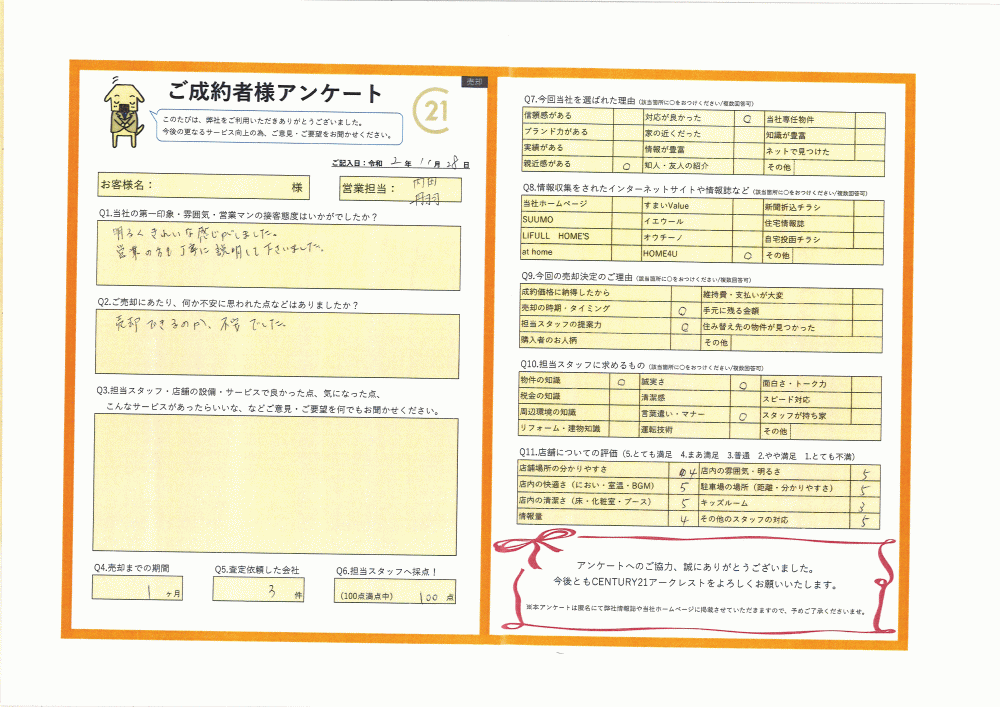 売却
ご成約者様アンケート
21
このたびは、弊社をご利用いただきありがとうございました。
今後の更なるサービス向上の為、ご意見・ご要望をお聞かせください。
ご記入日：令和 2 年 11 月 28 日
お客様名： 様
営業担当： 内田
丹羽
Q1.当社の第一印象・雰囲気・営業マンの接客態度はいかがでしたか？
明るくきれいな感じがしました。
営業の方も丁寧に説明して下さいました。
Q2.ご売却にあたり、何か不安に思われた点などはありましたか？
売却できるのか、不安でした。
Q3.担当スタッフ・店舗の設備・サービスで良かった点、気になった点、
こんなサービスがあったらいいな、などご意見・ご要望を何でもお聞かせください。
Q4.売却までの期間
1 ヶ月
Q5.査定依頼した会社
3 件
Q6.担当スタッフへ採点！
(100点満点中) 100 点
Q7.今回当社を選ばれた理由（該当箇所に○をおつけください/複数回答可）
信頼感がある 対応が良かった ○ 当社専任物件
ブランド力がある 家の近くだった 知識が豊富
実績がある 情報が豊富 ネットで見つけた
親近感がある ○ 知人・友人の紹介 その他
Q8.情報収集をされたインターネットサイトや情報誌など（該当箇所に○をおつけください/複数回答可）
当社ホームページ すまいValue 新聞折込チラシ
SUUMO イエウール 住宅情報誌
LIFULL HOME'S オウチーノ 自宅投函チラシ
at home HOME4U ○ その他
Q9.今回の売却決定のご理由（該当箇所に○をおつけください/複数回答可）
成約価格に納得したから 維持費・支払いが大変
売却の時期・タイミング ○ 手元に残る金額
担当スタッフの提案力 ○ 住み替え先の物件が見つかった
購入者のお人柄 その他
Q10.担当スタッフに求めるもの（該当箇所に○をおつけください/複数回答可）
物件の知識 ○ 誠実さ ○ 面白さ・トーク力
税金の知識 清潔感 スピード対応
周辺環境の知識 言葉遣い・マナー ○ スタッフが持ち家
リフォーム・建物知識 運転技術 その他
Q11.店舗についての評価（5.とても満足 4.まあ満足 3.普通 2.やや満足 1.とても不満）
店舗場所の分かりやすさ 4 店内の雰囲気・明るさ 5
店内の快適さ（におい・室温・BGM） 5 駐車場の場所（距離・分かりやすさ） 5
店内の清潔さ（床・化粧室・ブース） 5 キッズルーム 3
情報量 4 その他のスタッフの対応 5
アンケートへのご協力、誠にありがとうございました。
今後ともCENTURY21アークレストをよろしくお願いいたします。
※本アンケートは匿名にて弊社情報誌や当社ホームページに掲載させていただきますので、予めご了承くださいませ。